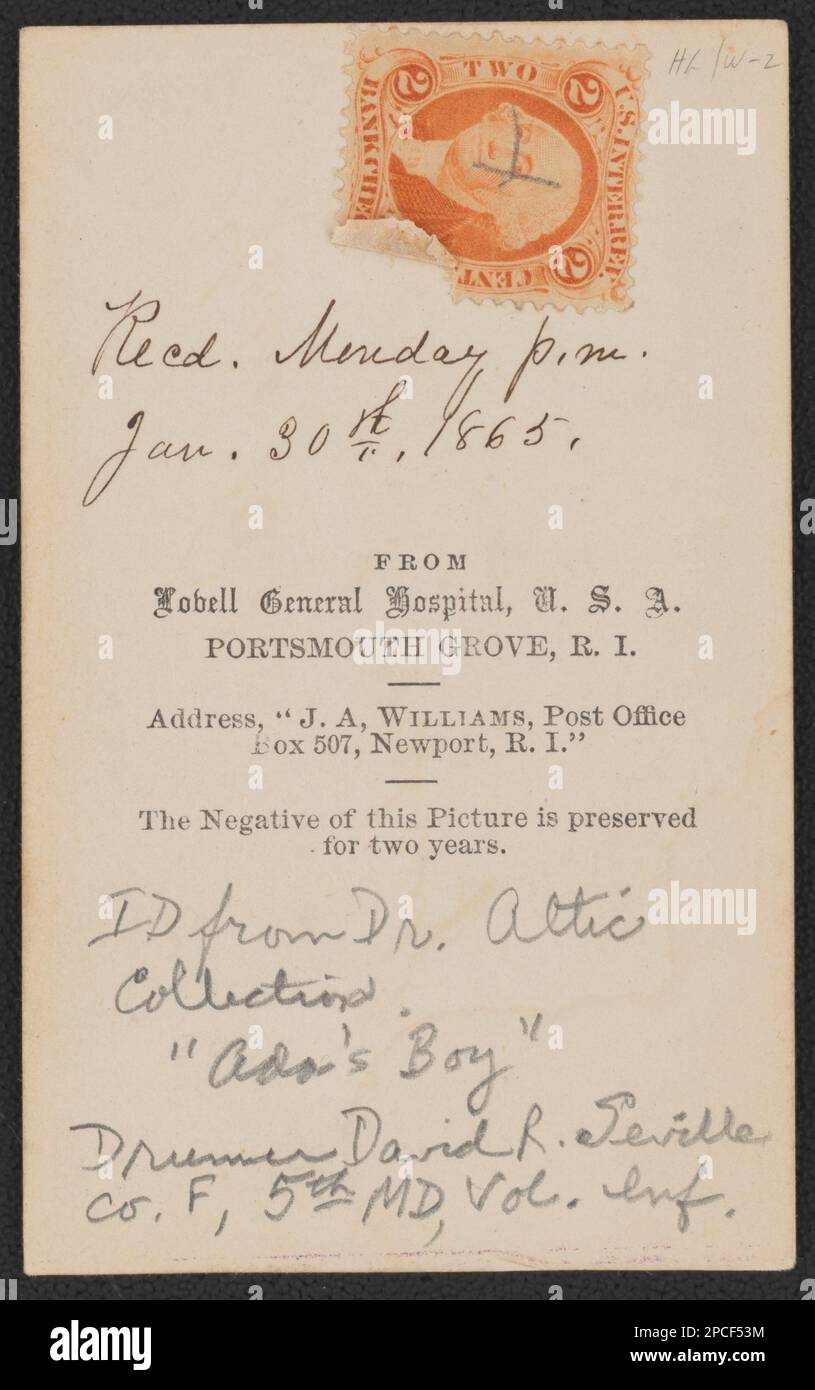 HL/W-2
TWO
2
2
U.S. INTER. REV.
BANK CHE
CENT
2
2
Recd. Monday p.m.
Jan. 30th, 1865.
FROM
Lovell General Hospital, U. S. A.
PORTSMOUTH GROVE, R. I.
Address, "J. A, WILLIAMS, Post Office
Box 507, Newport, R. I."
The Negative of this Picture is preserved
for two years.
ID from Dr. Attic
Collection.
"Ada's Boy"
Drummer David R. Seville
Co. F, 5th MD, Vol. Inf.
a
alamy
alamy
Image ID: 2PCF53M
www.alamy.com